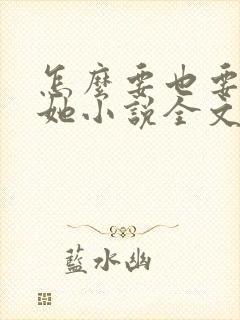 怎麼要也要
她小說全文
藍水幽